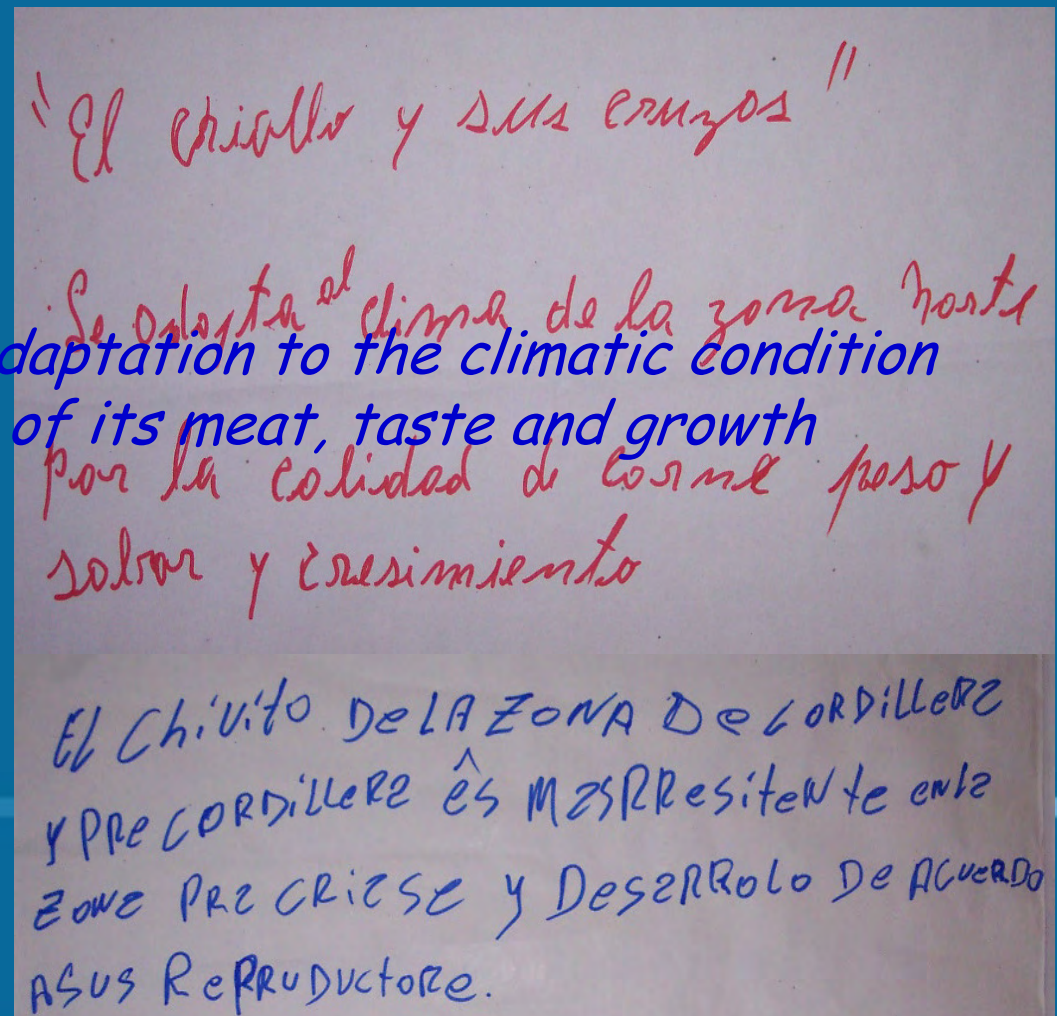 "El criollo y sus cruzas"
Se adapta al clima de la zona norte
daptation to the climatic condition
of its meat, taste and growth
Por la calidad de carne peso y
sabor y cresimiento
El Chivito DE LA ZONA De CORDILLERa
Y PRe CORDiLLeRa ês MaSRResiteNte enla
ZoNa PRa CRiaSe y DesaRRoLo De ACUeRDO
ASUS RePRuDuctoRe.